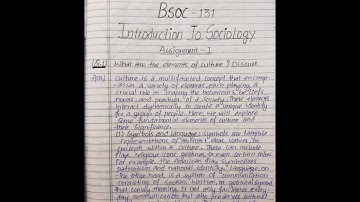 BSOC - 131
Introduction To Sociology
Assignment - I
Q.1 What are the elements of culture? Discuss.
Ans Culture is a multifaceted concept that encomp-
asses a variety of elements, each playing a
crucial role in shaping the behaviours, beliefs,
norms, and practices of a society. These elements
interact dynamically to create a unique identity
for a group of people. Here, we will explore
some fundamental elements of culture and
their significance.
(1) Symbols and language: Symbols are tangible
representations of abstract ideas, values or
concepts within a culture. These can include
flags, religious icons, gestures, or even certain
For example, the American flag symbolizes
patriotism and national identity. Language, on
the other hand, is a system of communication
consisting of spoken, written, or gestural
that convey meaning. It not only facilitates every-
day communication but also preserves